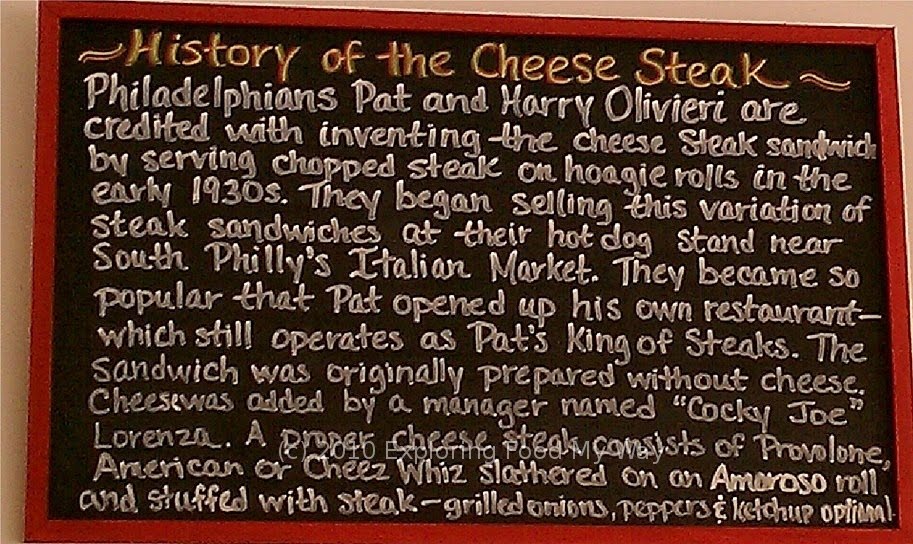 ~History of the Cheese Steak~
Philadelphians Pat and Harry Olivieri are
credited with inventing the cheese Steak sandwich
by serving chopped steak on hoagie rolls in the
early 1930s. They began selling this variation of
steak sandwiches at their hot dog stand near
South Philly's Italian Market. They became so
popular that Pat opened up his own restaurant—
which still operates as Pat's King of Steaks. The
Sandwich was originally prepared without cheese.
Cheese was added by a manager named "Cocky Joe"
Lorenza. A proper cheese steak consists of Provolone,
(c) 2010 Exploring Food My Way
American or Cheez Whiz slathered on an Amoroso roll
and stuffed with steak—grilled onions, peppers & ketchup optional